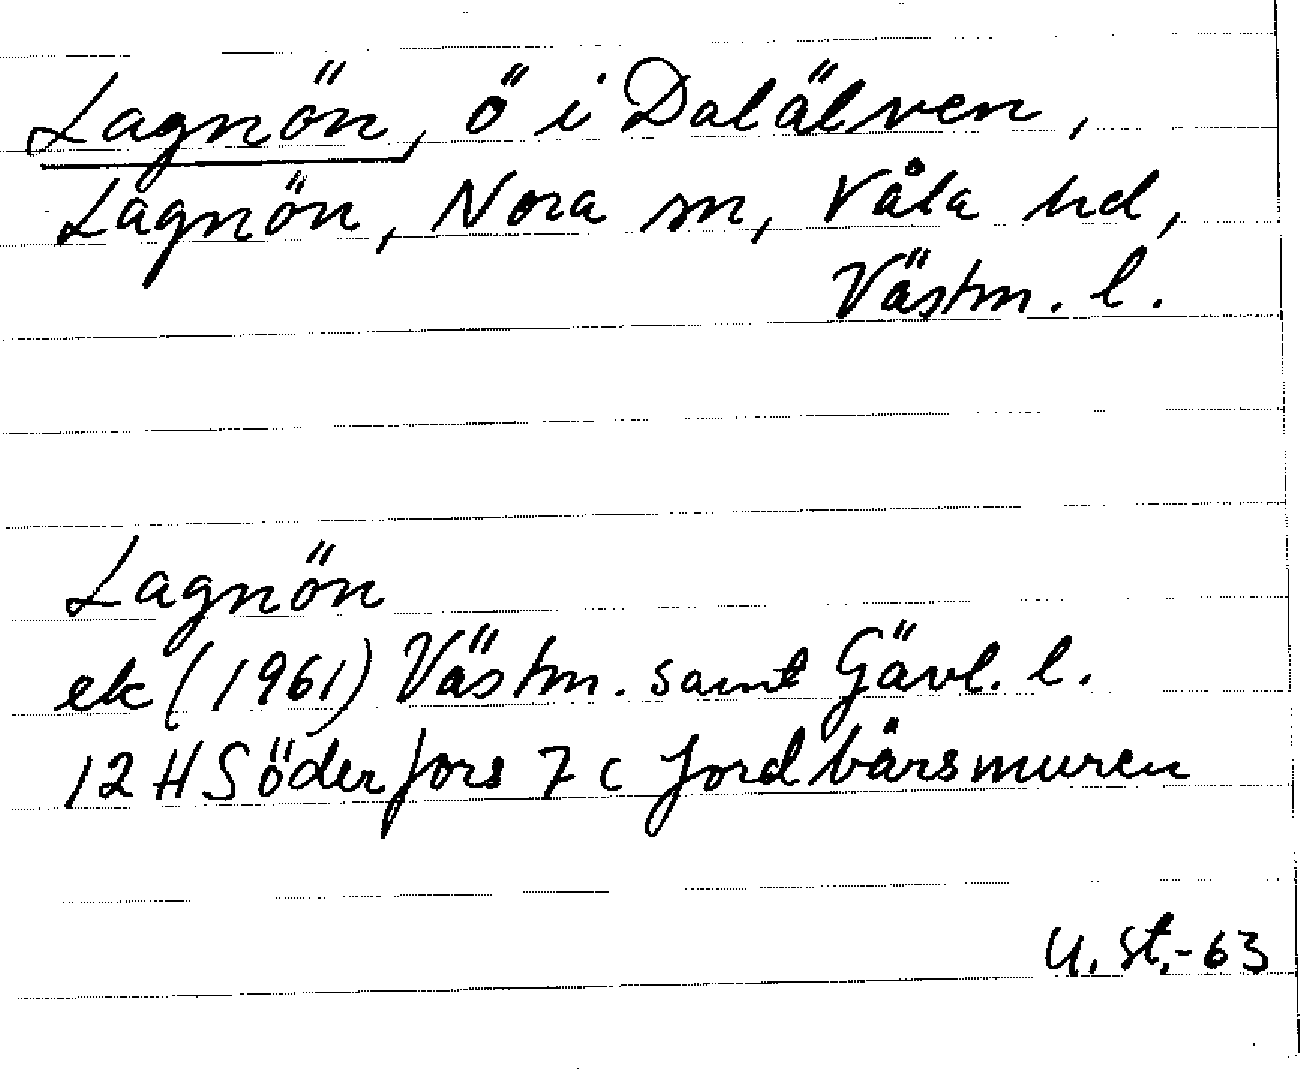 Lagnön, ö i Dalälven,
Lagnön, Nora sn, Våla hd,
Västm. l.
Lagnön
ek (1961) Västm. samt Gävl. l.
12 H Söderfors 7 c Jordbärsmuren
U. St. - 63